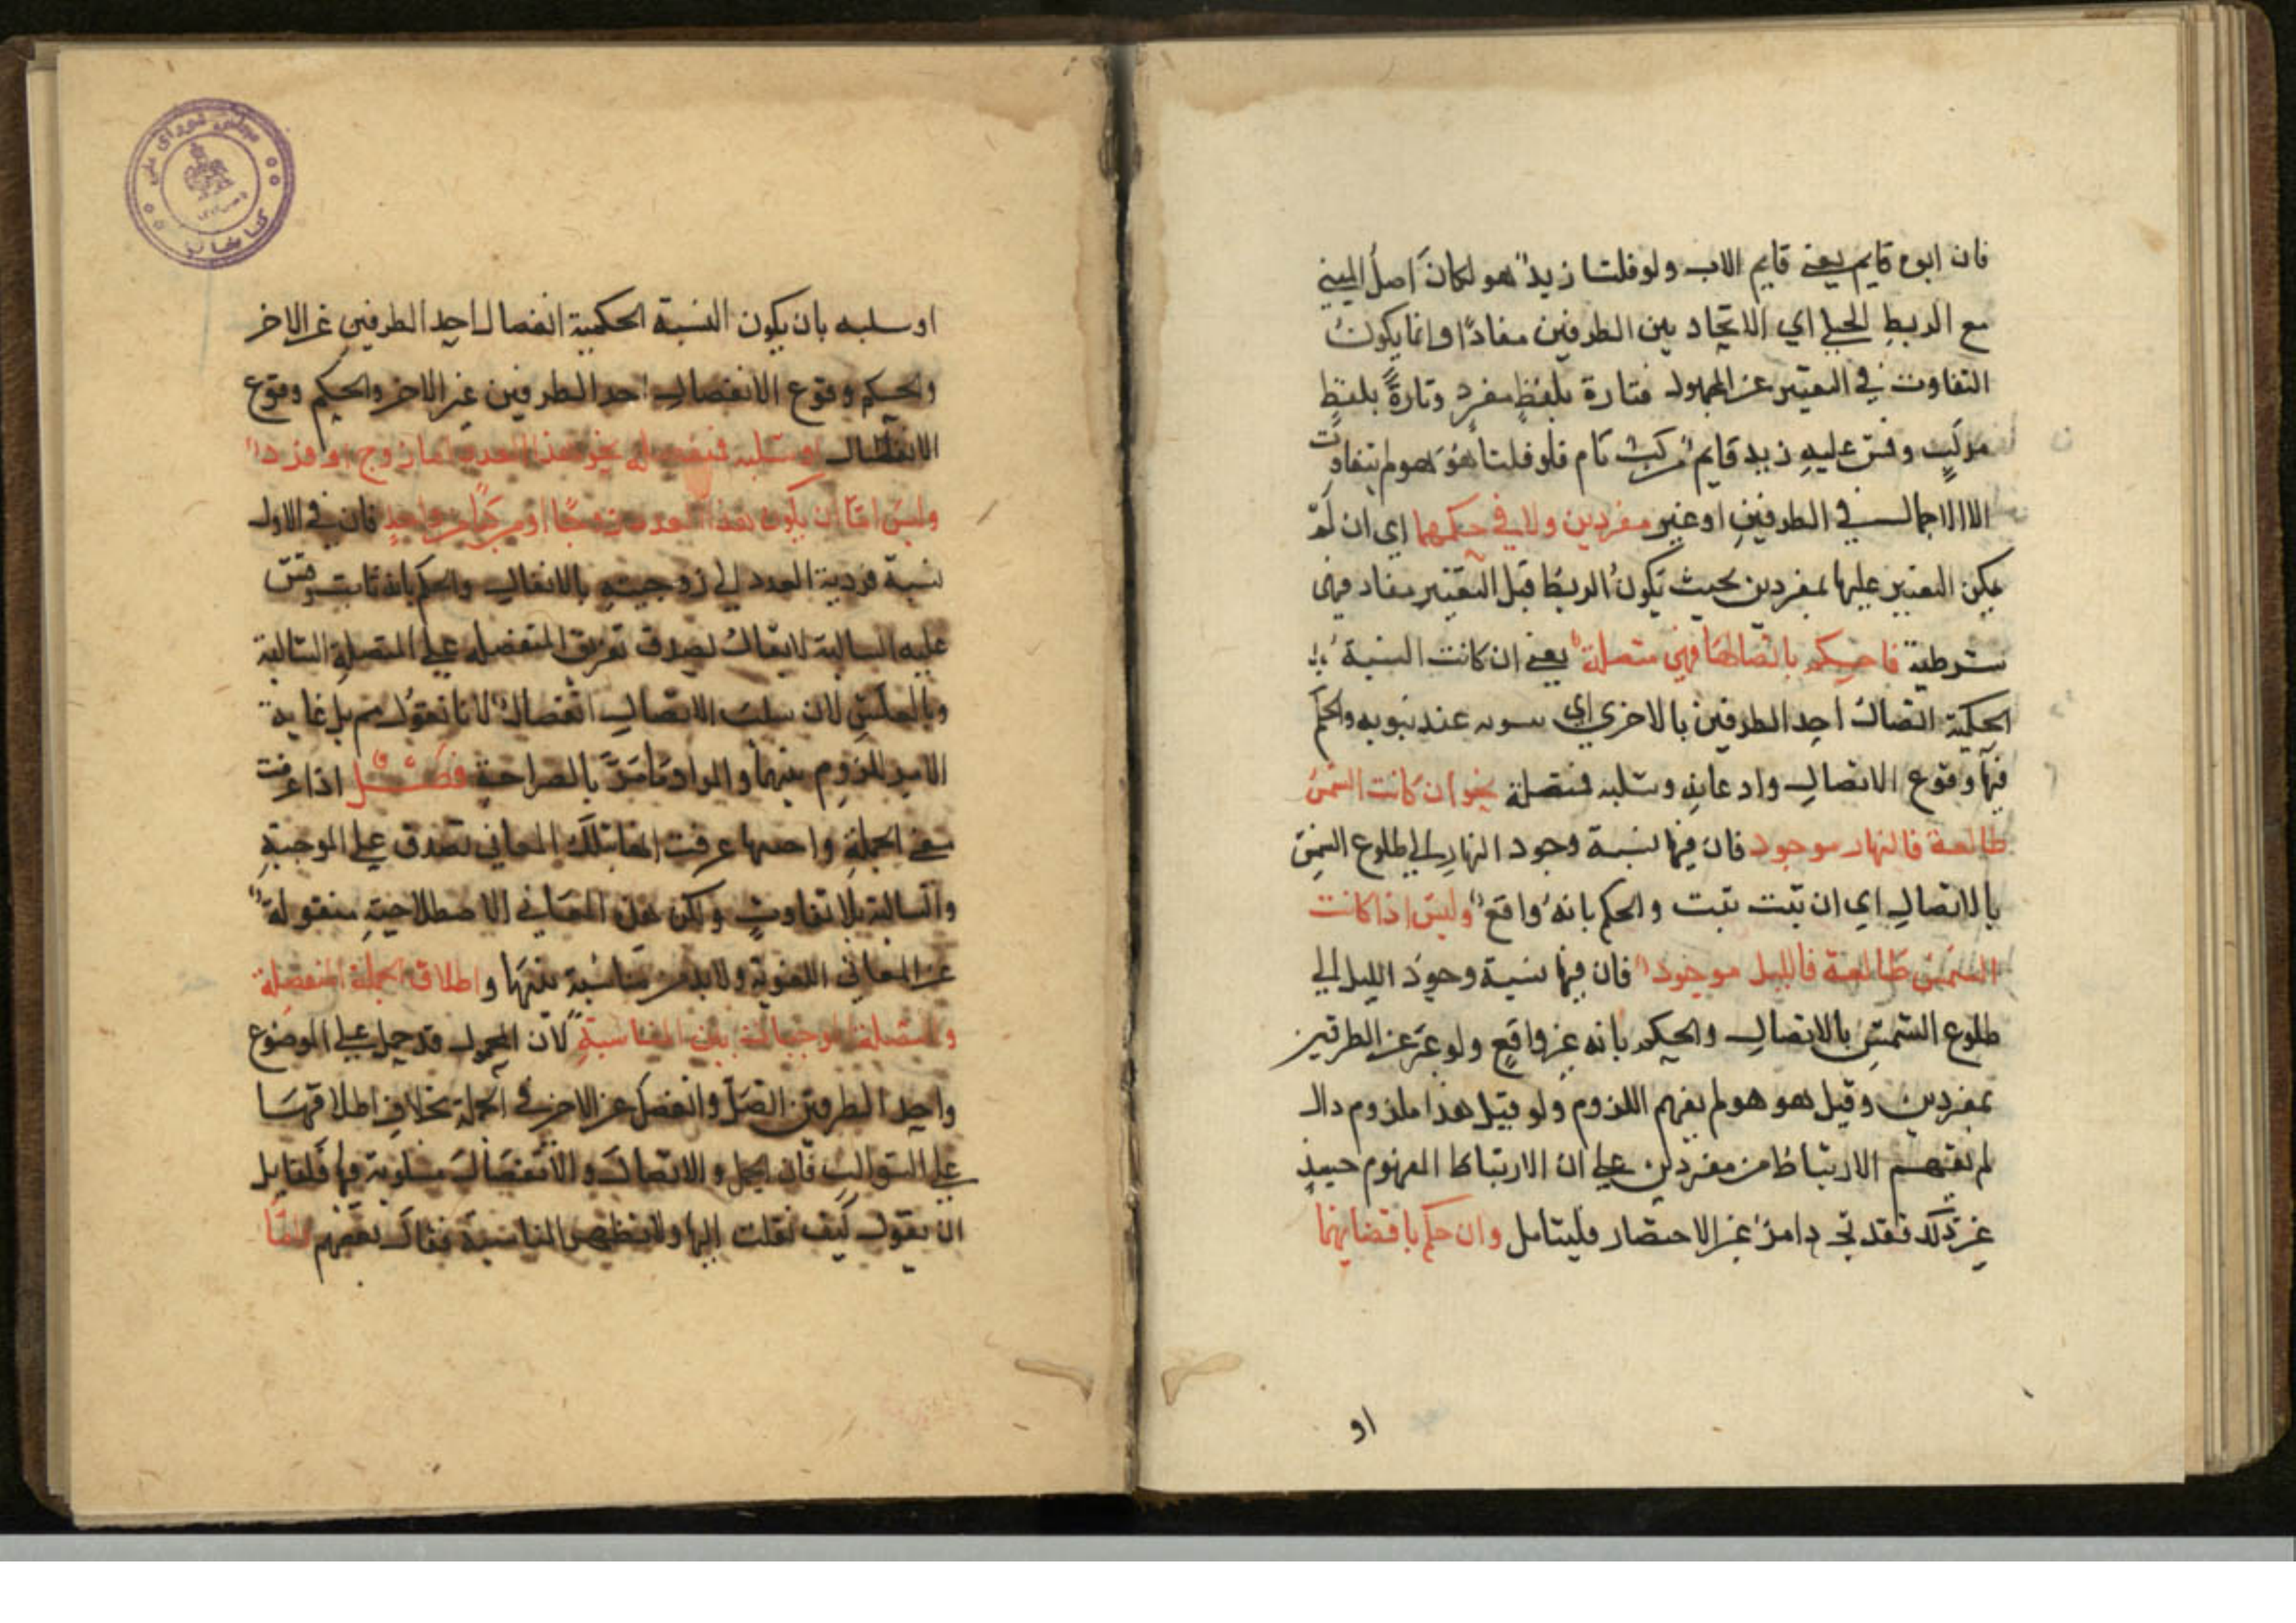 فان ابوه قايم يعني قايم الاب ولو قلنا زيد هو لكان اصل المبني
مع الربط الحملي اي الاتحاد بين الطرفين مفادا وانما يكون
التفاوت في التعبير عن المجهول فتارة بلفظ مفرد وتارة بلفظ
مركب وقس عليه زيد قايم مركب تام فلو قلنا هو هو لم يتفاوت
الا الاجمال في الطرفين او غير مفردين ولا في حكمهما اي ان لم
يمكن التعبير عليها بمفردين بحيث يكون الربط قبل التعبير مفاد فهي
شرطية فاحكم باتصالها فهي متصلة يعني ان كانت النسبة
الحكمية اتصال احد الطرفين بالاخري اي عند ثبوته والحكم
فيها وقوع الاتصال واذعانه وسلبه فمتصلة نحو ان كانت الشمس
طالعة فالنهار موجود فان فيها نسبة وجود النهار الي طلوع الشمس
بالاتصال اي ان ثبت ثبت والحكم بانه واقع وليس اذا كانت
الشمس طالعة فالليل موجود فان فيها نسبة وجود الليل الي
طلوع الشمس بالاتصال والحكم بانه غير واقع ولو عبر عن الطرفين
بمفردين وقيل هو هو لم يفهم اللزوم ولو قيل هذا ملزوم ذاك
لم يفهم الارتباط من مفردين علي ان الارتباط المفهوم حينئذ
غير ذلك فقد تجد امن عن الاحتصار فليتامل وان حكم بافضايهما
او
او سلبه بان يكون النسبة الحكمية انفصال احد الطرفين عن الاخر
والحكم وقوع الانفصال احد الطرفين عن الاخر والحكم وقوع
الانفصال او سلبه فمنفصلة نحو هذا العدد اما زوج او فرد
وليس اما ان يكون هذا العدد زوجا او مركبا من واحد فان في الاول
نسبة فردية العدد الي زوجيته بالانفصال والحكم بانه ثابت وقس
عليه السالبة لا يقال يصدق تعريف المنفصلة علي المتصلة السالبة
وبالعكس لان سلب الاتصال انفصال لانا نقول مم بل غاية
الامر اللزوم بينهما والمراد ما مر بالصراحة فصل اذا عرفت
معني الجملة واختيها عرفت ان تلك المعاني تصدق علي الموجبة
والسالبة بلا تفاوت ولكن هذه المعاني الاصطلاحية منقولة
عن المعاني اللغوية ولا بد من مناسبة بينها واطلاق الجملة المنفصلة
والمتصلة الموجبات بين المناسبة لان المحمول قد حمل علي الموضوع
واحد الطرفين اتصل وانفصل عن الاخر في الجملة بخلاف اطلاقها
علي السوالب فان الحمل والاتصال والانفصال مسلوبة فيها فلقايل
ان يقول كيف نقلت اليها ولا يظهر المناسبة فقال بعضهم